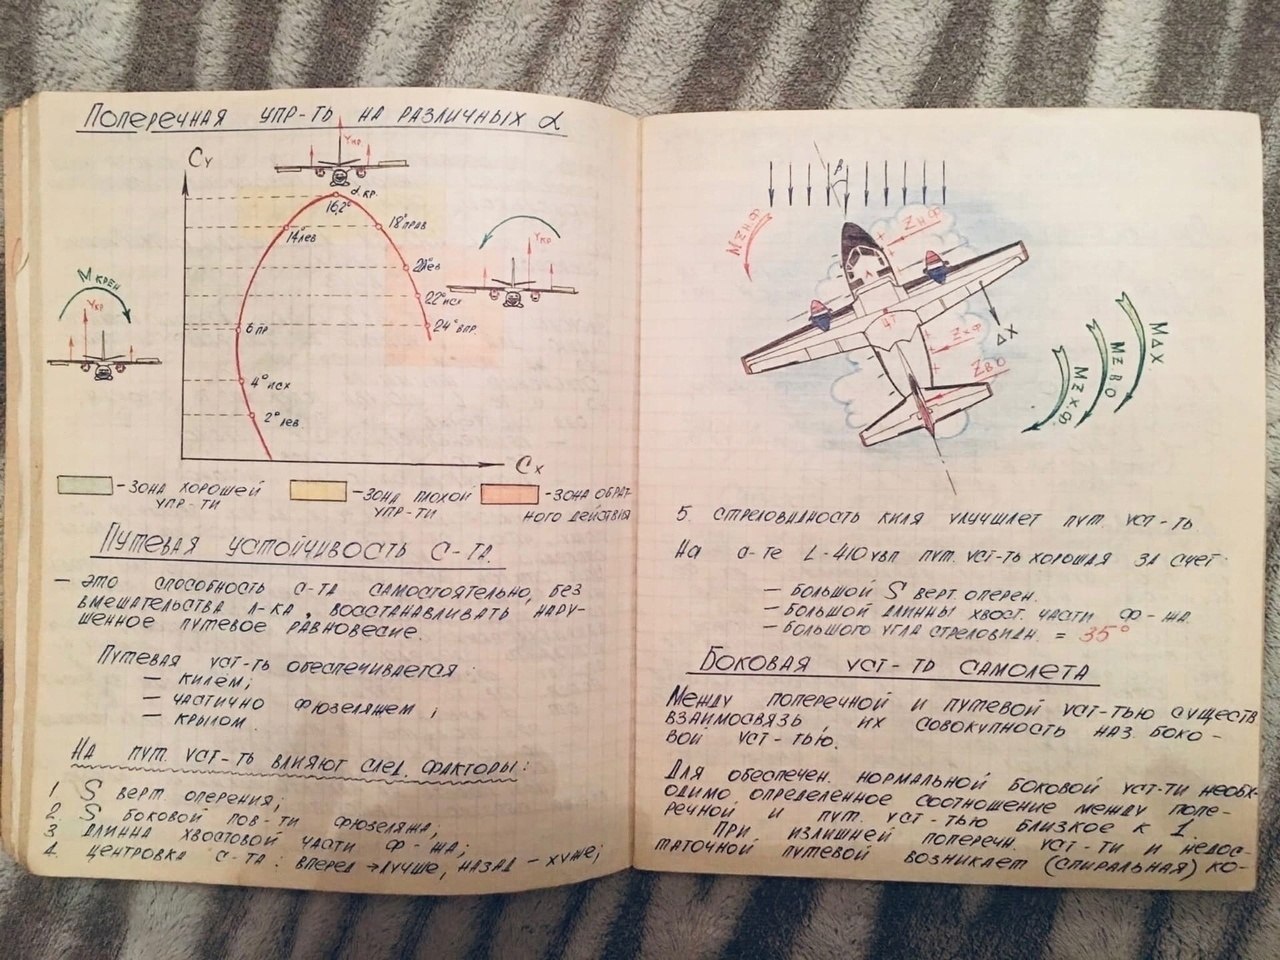 Поперечная упр-ть на различных α
Cy
Yкр
α кр
16,2°
14° лев
18° прав
Yкр
Mкрен
Yкр
22° исх
6 пр
24° впр
4° исх
2° лев
Cx
- зона хорошей
упр-ти
- зона плохой
упр-ти
- зона обрат-
ного действия
Путевая устойчивость с-та
— это способность с-та самостоятельно, без
вмешательства л-ка, восстанавливать нару-
шенное путевое равновесие.
Путевая уст-ть обеспечивается:
— килем;
— частично фюзеляжем;
— крылом.
На пут. уст-ть влияют след. факторы:
1 S верт. оперения;
2. S боковой пов-ти фюзеляжа;
3 длинна хвостовой части ф-жа;
4. центровка с-та: вперед → лучше, назад – хуже;
β
Mzн.ф
Zн.ф
ΔX
Zх.ф
Zво
MΔX
Mzво
Mzх.ф.
5. стреловидность киля улучшает пут. уст-ть
На с-те L-410увп пут. уст-ть хорошая за счет:
— большой S верт. оперен.
— большой длинны хвост. части ф-жа
— большого угла стреловидн. = 35°
Боковая уст-ть самолета
Между поперечной и путевой уст-тью существ
взаимосвязь, их совокупность наз. боко-
вой уст-тью.
Для обеспечен. нормальной боковой уст-ти необх-
одимо определенное соотношение между попе-
речной и пут. уст-тью близкое к 1.
При излишней поперечн. уст-ти и недос-
таточной путевой возникает (спиральная) ко-